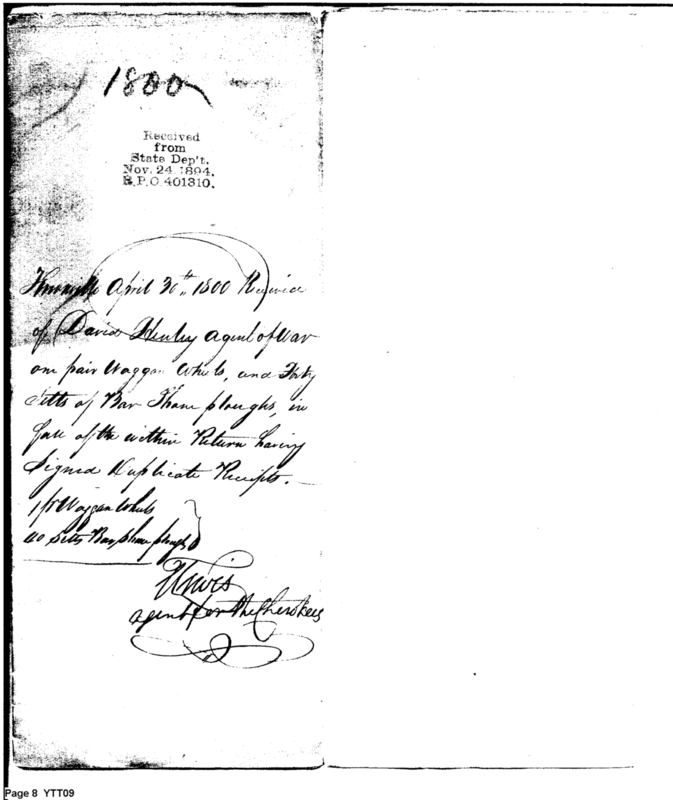 1800
Received
from
State Dep't.
Nov. 24 1894.
R.P.O. 401310.
Knoxville April 30th 1800 Received
of David Henley Agent of War
one pair Waggon Wheels, and Forty
Setts of Bar Share ploughs, in
full of the within Return having
Signed Duplicate Receipts.
1 pr Waggon Wheels
40 Setts Bar Share ploughs
agent for the Cherokees
Page 8 YTT09